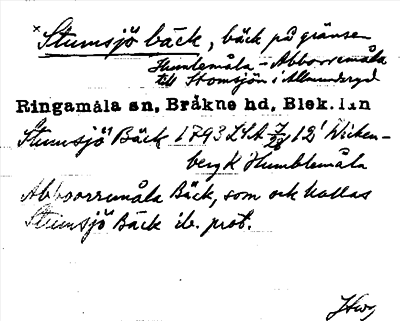 × Stumsjö bäck, bäck på gränsen
Humlemåla - Abborremåla
till Stomsjön i Almundsryd
Ringamåla sn, Bråkne hd, Blek. län
Stumsjö Bäck 1793 LSA 12' Wicken-
berg k Humblemåla
Abborremåla Bäck, som ock kallas
Stumsjö Bäck ib. prot.